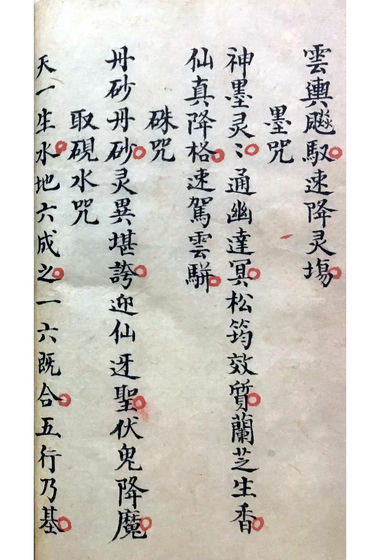 雲輿飚馭速降灵塲
墨咒
神墨灵〻通幽達冥松筠效质蘭芝生香
仙真降格速駕雲駢
硃咒
丹砂丹砂灵異堪誇迎仙迓聖伏鬼降魔
取硯水咒
天一生水地六成之一六既合五行乃基